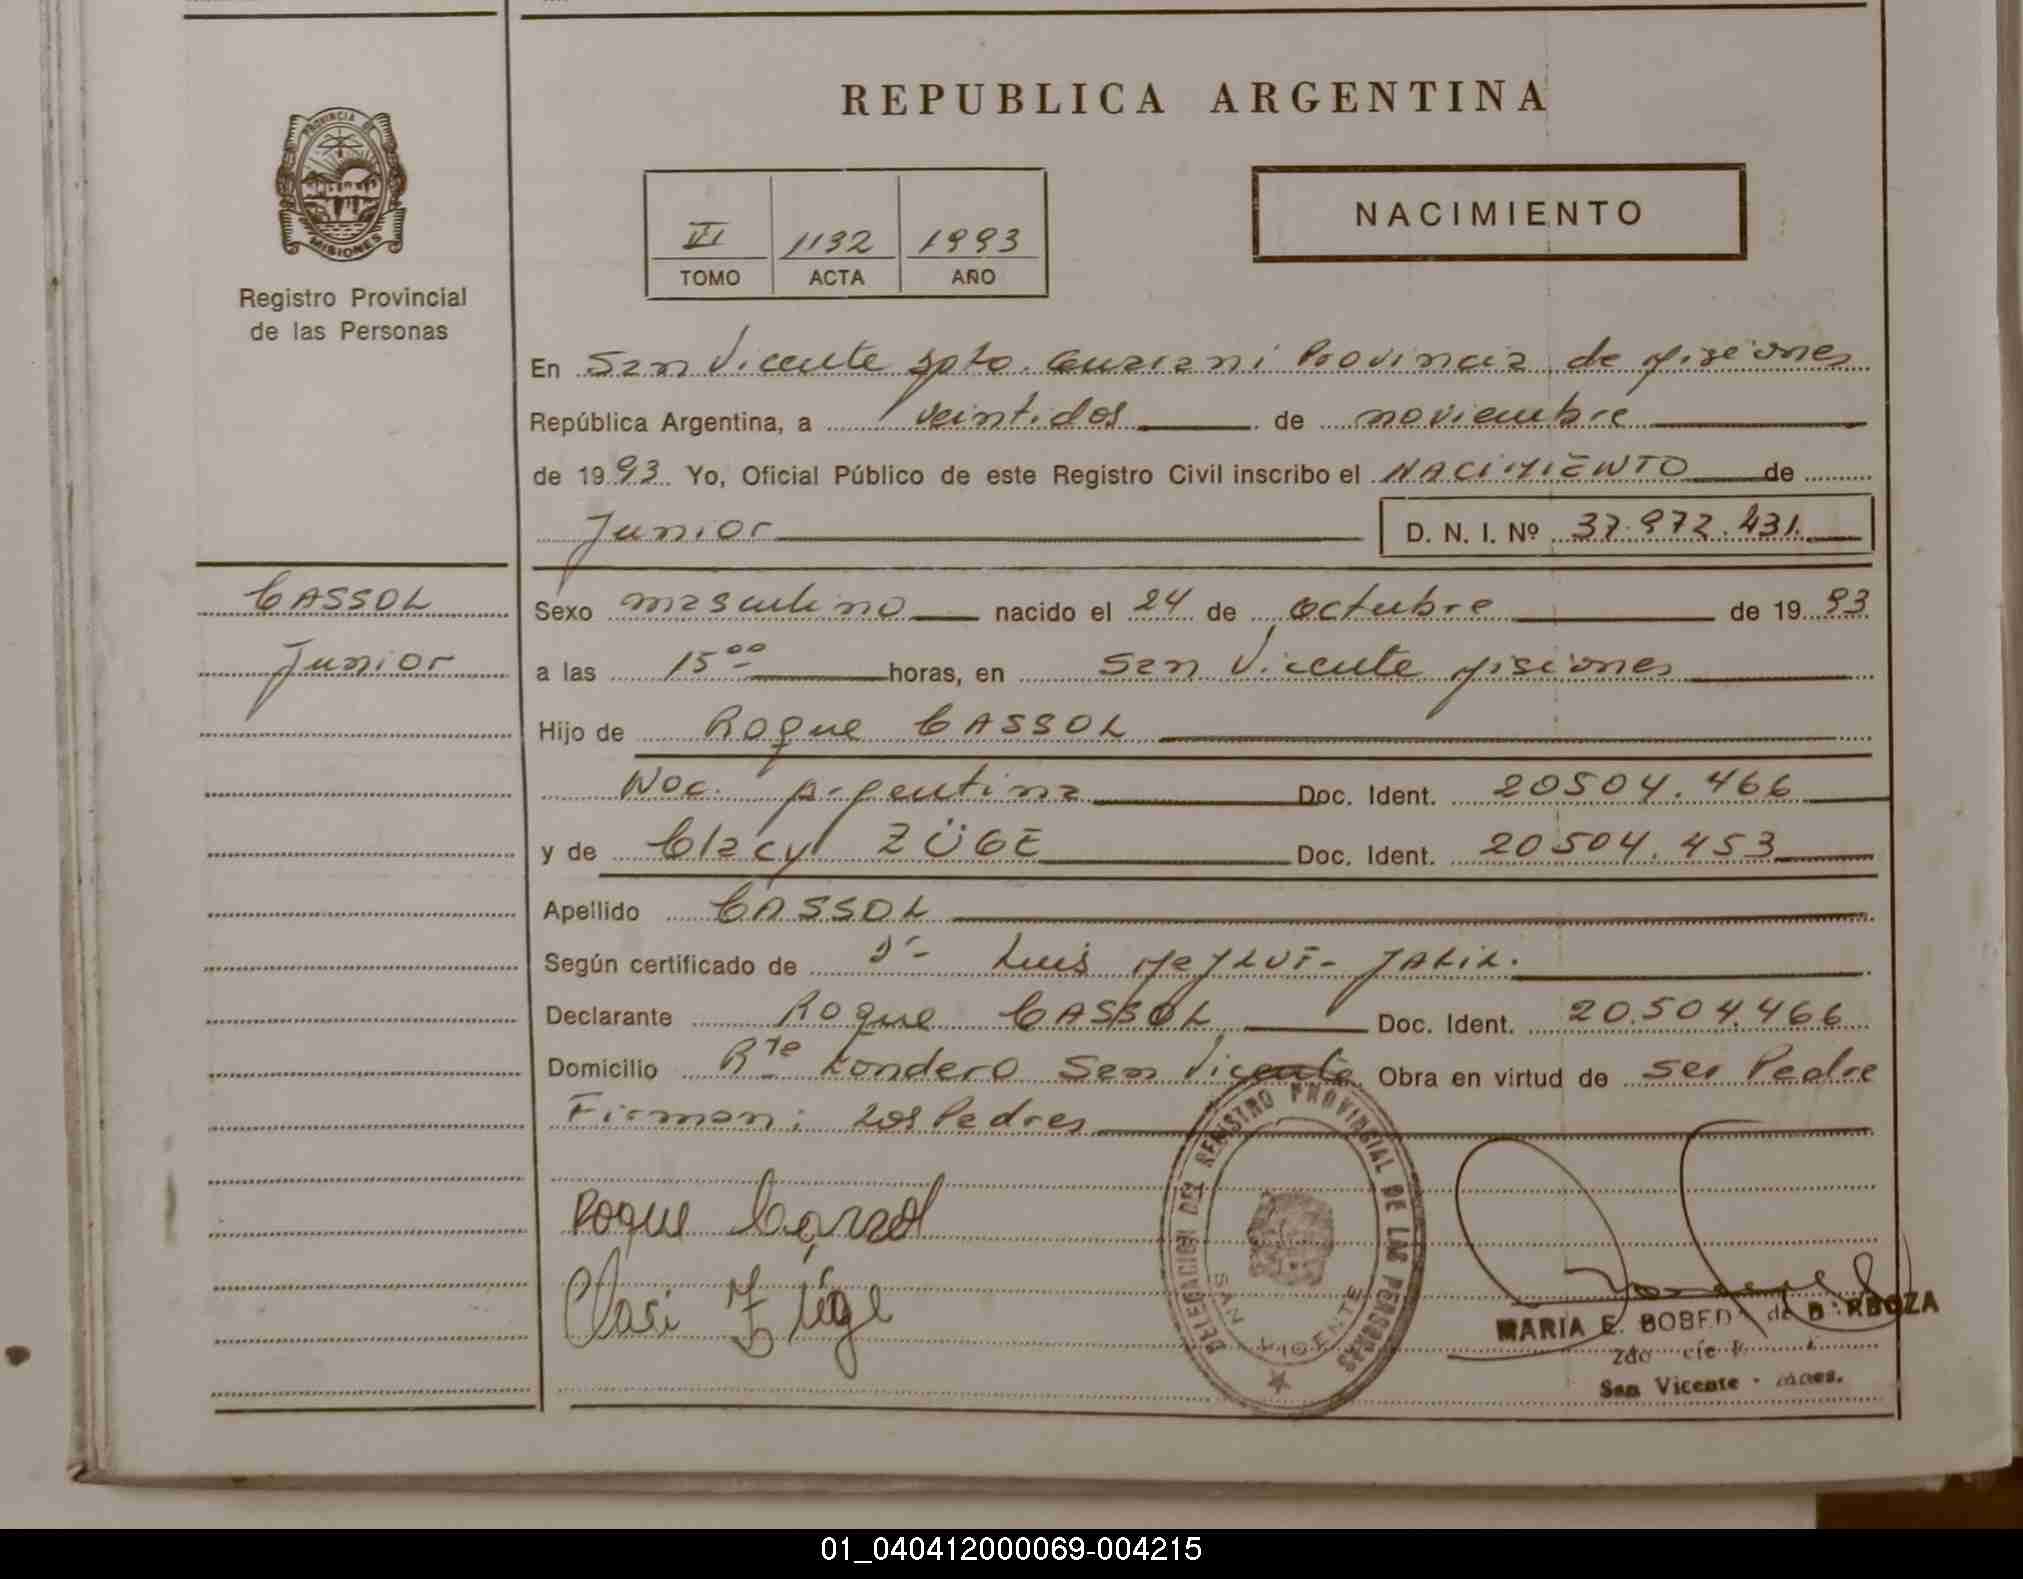 REPUBLICA ARGENTINA
PROVINCIA DE
MISIONES
Registro Provincial
de las Personas
NACIMIENTO
VI 1132 1993
TOMO ACTA AÑO
En San Vicente Dpto. Guarani Provincia de Misiones
República Argentina, a veintidos de noviembre
de 1993 Yo, Oficial Público de este Registro Civil inscribo el NACIMIENTO de
Junior D. N. I. Nº 37.972.431.
CASSOL
Junior
Sexo masculino nacido el 24 de octubre de 1993
a las 15 00 horas, en San Vicente Misiones
Hijo de Roque CASSOL
Nac. Argentina Doc. Ident. 20504.466
y de Clacy ZÜGE Doc. Ident. 20504.453
Apellido CASSOL
Según certificado de Dr- Luis JALIL.
Declarante Roque CASSOL Doc. Ident. 20.504.466
Domicilio Rte Londero San Vicente Obra en virtud de ser Padre
Firman: Los Padres
Roque Cassol
Claci Züge
DELEGACION DEL REGISTRO PROVINCIAL DE LAS PERSONAS
SAN VICENTE
MARIA E. de
2do
San Vicente - Mnes.
01_040412000069-004215